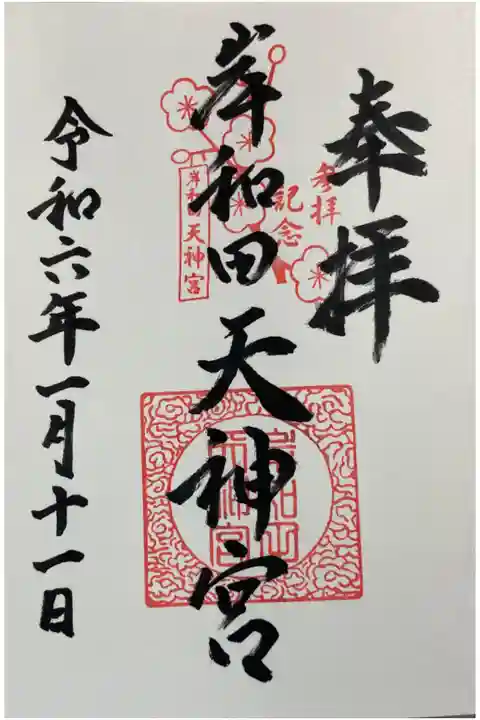 奉拝
参拝
記念
岸和田天神宮
岸和田天神宮
岸和田
天神宮
令和六年一月十一日